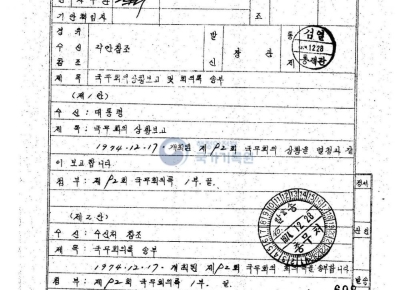 기안책임자 조
경유 발 통 검열
수신 각안참조 장관 12.28
참조 신 제 통제관
제목 국무회의 상황보고 및 회의록 송부
(제1안)
수신: 대통령
제목: 국무회의 상황보고
1974.12.17. 개최된 제92회 국무회의 상황을 별첨과 같
이 보고합니다.
첨부: 제92회 국무회의록 1부. 끝.
정서
(제2안)
수신: 수신처 참조
제목: 국무회의록 송부
1974.12.17. 개최된 제92회 국무회의 회의록을 송부합니다.
첨부: 제92회 국무회의록 1부. 끝.
관인
발송
12.28
총무처
국가기록원